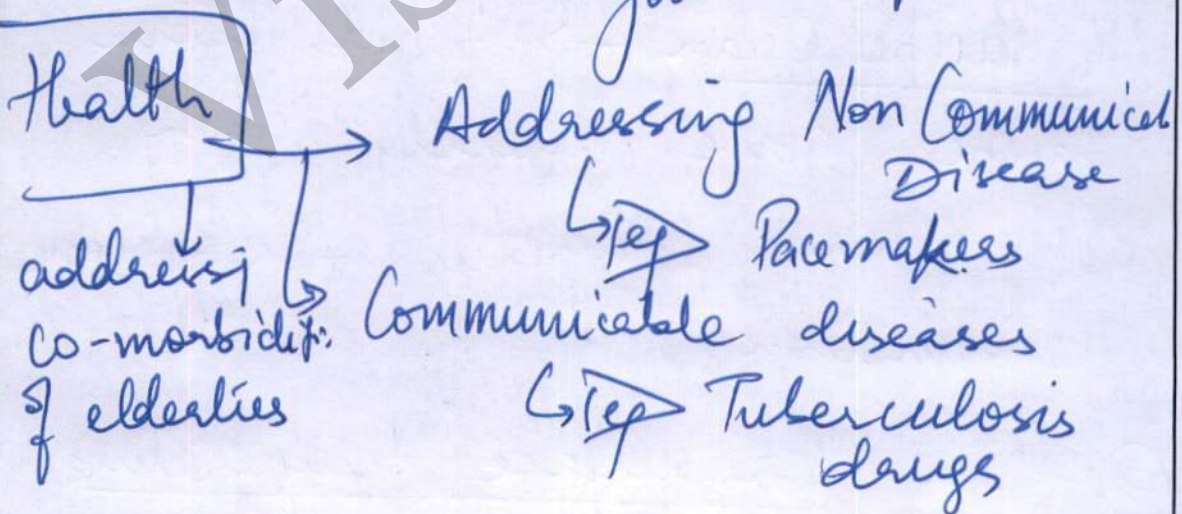 Health → Addressing Non Communicabl
Disease
↳ eg Pacemakers
addressi
co-morbiditi.
of elderlies
Communicable diseases
↳ eg Tuberculosis
drugs